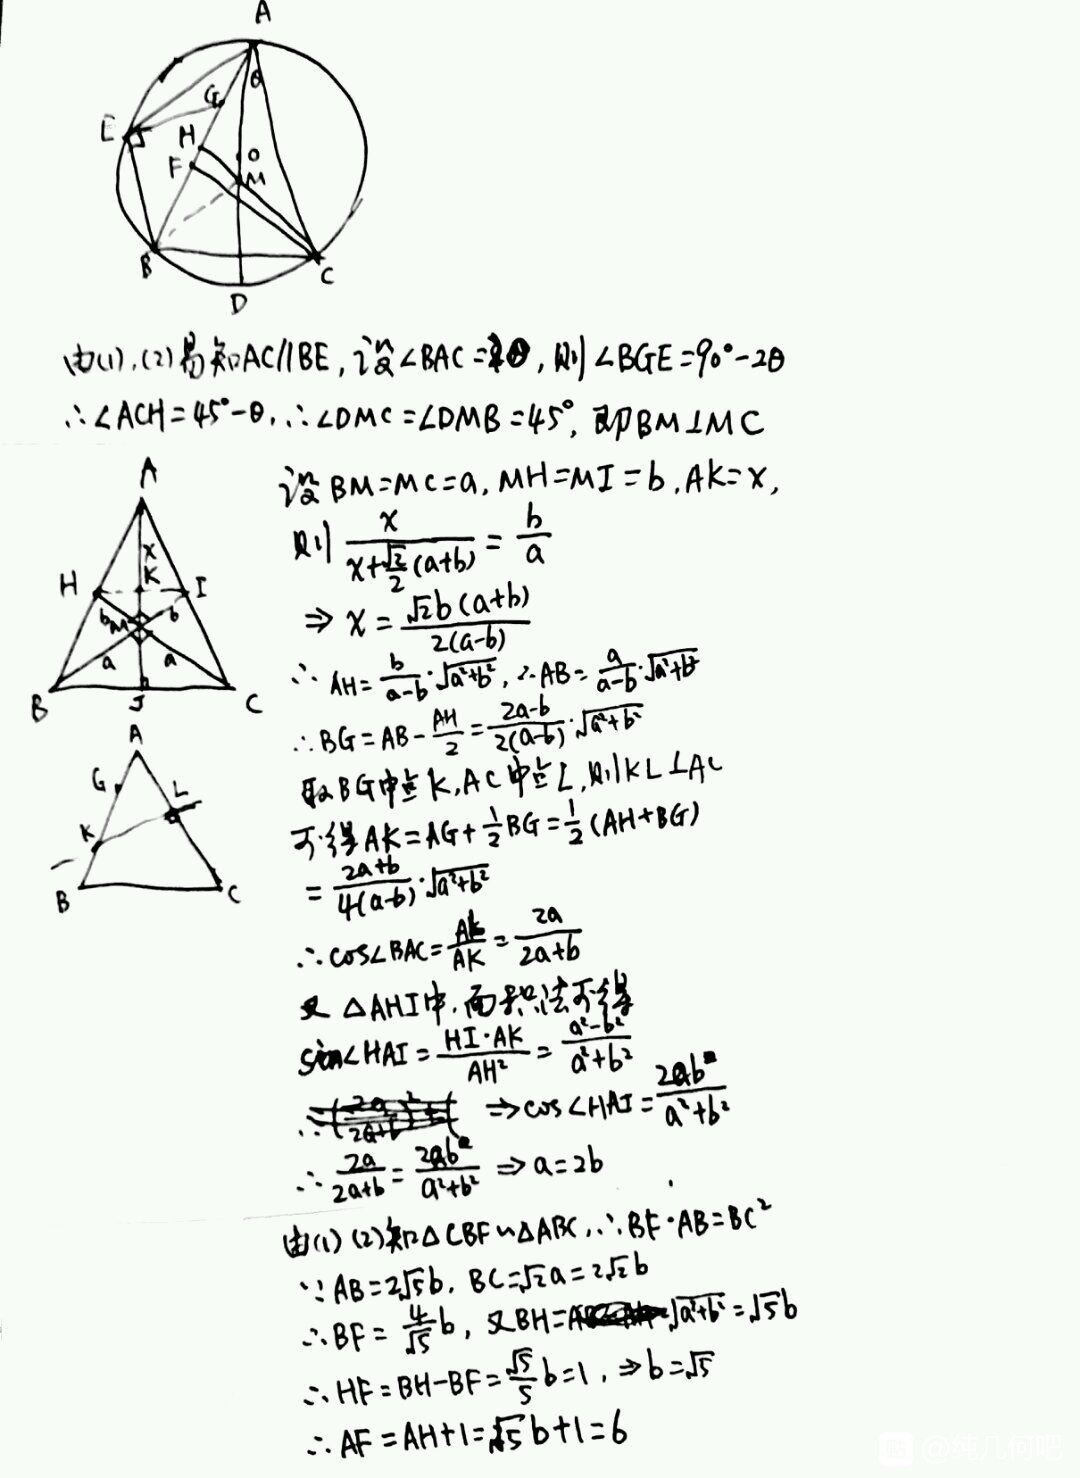 A
θ
G
E
H
O
F
M
B
C
D
由(1),(2)易知AC∥BE,设∠BAC=2θ,则∠BGE=90°-2θ
∴∠ACH=45°-θ,∴∠DMC=∠DMB=45°,即BM⊥MC
A
x
K
H
I
b
M
b
a
a
B
J
C
设BM=MC=a,MH=MI=b,AK=x,
则 x/(x+√2/2(a+b)) = b/a
⇒ x = √2b(a+b)/2(a-b)
∴AH=b/(a-b)·√(a²+b²),∴AB=a/(a-b)·√(a²+b²)
∴BG=AB-AH/2=(2a-b)/2(a-b)·√(a²+b²)
A
G
L
K
B
C
取BG中点K,AC中点L,则KL⊥AC
可得AK=AG+1/2BG=1/2(AH+BG)
=(2a+b)/4(a-b)·√(a²+b²)
∴cos∠BAC=AL/AK=2a/(2a+b)
又△AHI中,面积法可得
sin∠HAI=HI·AK/AH²=(a²-b²)/(a²+b²)
⇒cos∠HAI=2ab/(a²+b²)
∴2a/(2a+b)=2ab/(a²+b²) ⇒a=2b
由(1)(2)知△CBF∽△ABC,∴BF·AB=BC²
∵AB=2√5b,BC=√2a=2√2b
∴BF=4/√5b,又BH=√(a²+b²)=√5b
∴HF=BH-BF=√5/5b=1,⇒b=√5
∴AF=AH+1=√5b+1=6
@纯几何吧